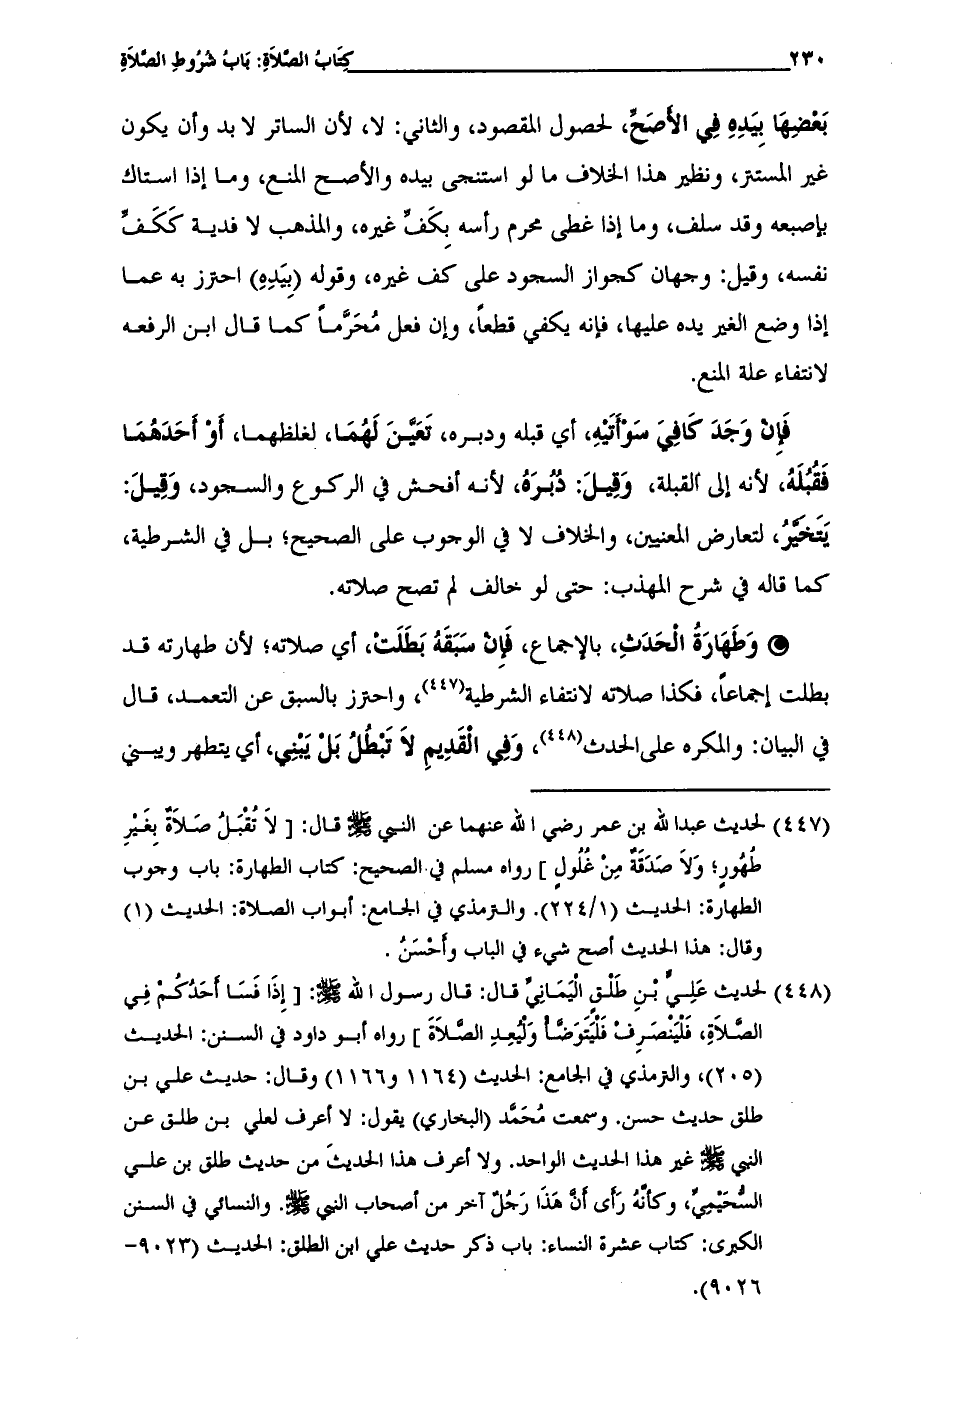 ٢٣٠ كِتَابُ الصَّلاَةِ: بَابُ شُرُوطِ الصَّلاَةِ
بَعْضِهَا بِيَدِهِ فِي الأَصَحِّ، لحصول المقصود، والثاني: لا، لأن الساتر لا بد وأن يكون
غير المستتر، ونظير هذا الخلاف ما لو استنجى بيده والأصح المنع، وما إذا استاك
بإصبعه وقد سلف، وما إذا غطى محرم رأسه بِكَفِّ غيره، والمذهب لا فدية كَكَفِّ
نفسه، وقيل: وجهان كجواز السجود على كف غيره، وقوله (بِيَدِهِ) احترز به عما
إذا وضع الغير يده عليها، فإنه يكفي قطعاً، وإن فعل مُحَرَّماً كما قال ابن الرفعه
لانتفاء علة المنع.
فَإِنْ وَجَدَ كَافِيَ سَوْأَتَيْهِ، أي قبله ودبره، تَعَيَّنَ لَهُمَا، لغلظهما، أَوْ أَحَدَهُمَا
فَقُبُلَهُ، لأنه إلى القبلة، وَقِيلَ: دُبُرَهُ، لأنه أفحش في الركوع والسجود، وَقِيلَ:
يَتَخَيَّرُ، لتعارض المعنيين، والخلاف لا في الوجوب على الصحيح؛ بل في الشرطية،
كما قاله في شرح المهذب: حتى لو خالف لم تصح صلاته.
وَطَهَارَةُ الْحَدَثِ، بالإجماع، فَإِنْ سَبَقَهُ بَطَلَتْ، أي صلاته؛ لأن طهارته قد
بطلت إجماعاً، فكذا صلاته لانتفاء الشرطية(٤٤٧)، واحترز بالسبق عن التعمد، قال
في البيان: والمكره على الحدث(٤٤٨)، وَفِي الْقَدِيمِ لاَ تَبْطُلُ بَلْ يَبْنِي، أي يتطهر ويبني
(٤٤٧) لحديث عبدالله بن عمر رضي الله عنهما عن النبي ﷺ قال: [ لاَ تُقْبَلُ صَلاَةٌ بِغَيْرِ
طُهُورٍ؛ وَلاَ صَدَقَةٌ مِنْ غُلُولٍ ] رواه مسلم في الصحيح: كتاب الطهارة: باب وجوب
الطهارة: الحديث (٢٢٤/١). والترمذي في الجامع: أبواب الصلاة: الحديث (١)
وقال: هذا الحديث أصح شيء في الباب وأَحْسَنُ .
(٤٤٨) لحديث عَلِيِّ بْنِ طَلْقٍ الْيَمَانِيِّ قال: قال رسول الله ﷺ: [ إِذَا فَسَا أَحَدُكُمْ فِي
الصَّلاَةِ، فَلْيَنْصَرِفْ فَلْيَتَوَضَّأْ وَلْيُعِدِ الصَّلاَةَ ] رواه أبو داود في السنن: الحديث
(٢٠٥)، والترمذي في الجامع: الحديث (١١٦٤ و١١٦٦) وقال: حديث علي بن
طلق حديث حسن. وسمعت مُحَمَّد (البخاري) يقول: لا أعرف لعلي بن طلق عن
النبي ﷺ غير هذا الحديث الواحد. ولا أعرف هذا الحديثَ من حديث طلق بن علي
السُّحَيْمِيِّ، وكأنَّهُ رَأَى أَنَّ هَذَا رَجُلٌ آخر من أصحاب النبي ﷺ. والنسائي في السنن
الكبرى: كتاب عشرة النساء: باب ذكر حديث علي ابن الطلق: الحديث (٩٠٢٣-
٩٠٢٦).